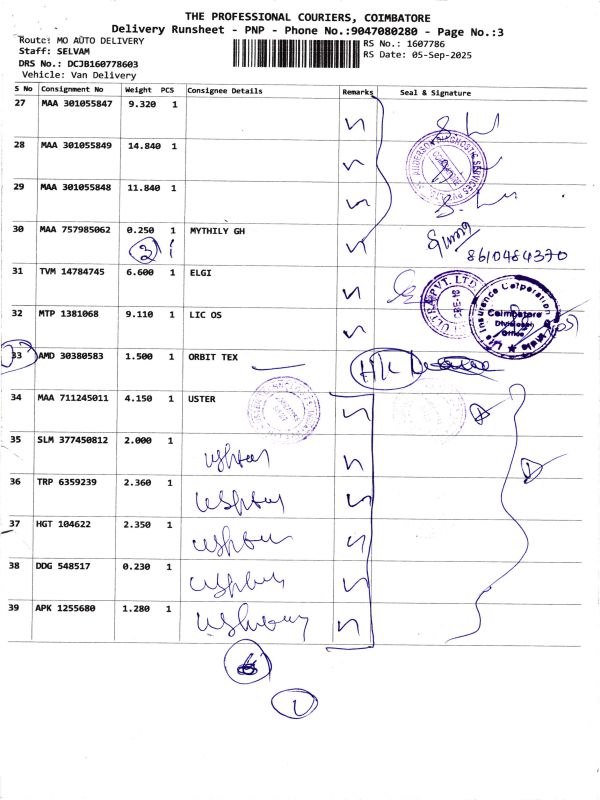 THE PROFESSIONAL COURIERS, COIMBATORE
Delivery Runsheet - PNP - Phone No.:9047080280 - Page No.:3
Route: MO AUTO DELIVERY
RS No.: 1607786
Staff: SELVAM
RS Date: 05-Sep-2025
DRS No.: DCJB160778603
Vehicle: Van Delivery
S No Consignment No Weight PCS Consignee Details Remarks Seal & Signature
27 MAA 301055847 9.320 1
28 MAA 301055849 14.840 1
29 MAA 301055848 11.840 1
30 MAA 757985062 0.250 1 MYTHILY GH
3 1
8610484370
31 TVM 14784745 6.600 1 ELGI
ULTRA PVT. LTD
32 MTP 1381068 9.110 1 LIC OS
Life Insurance Corporation
Coimbatore
Divisional
Office
33 AMD 30380583 1.500 1 ORBIT TEX
34 MAA 711245011 4.150 1 USTER
35 SLM 377450812 2.000 1
36 TRP 6359239 2.360 1
37 HGT 104622 2.350 1
38 DDG 548517 0.230 1
39 APK 1255680 1.280 1
6
1